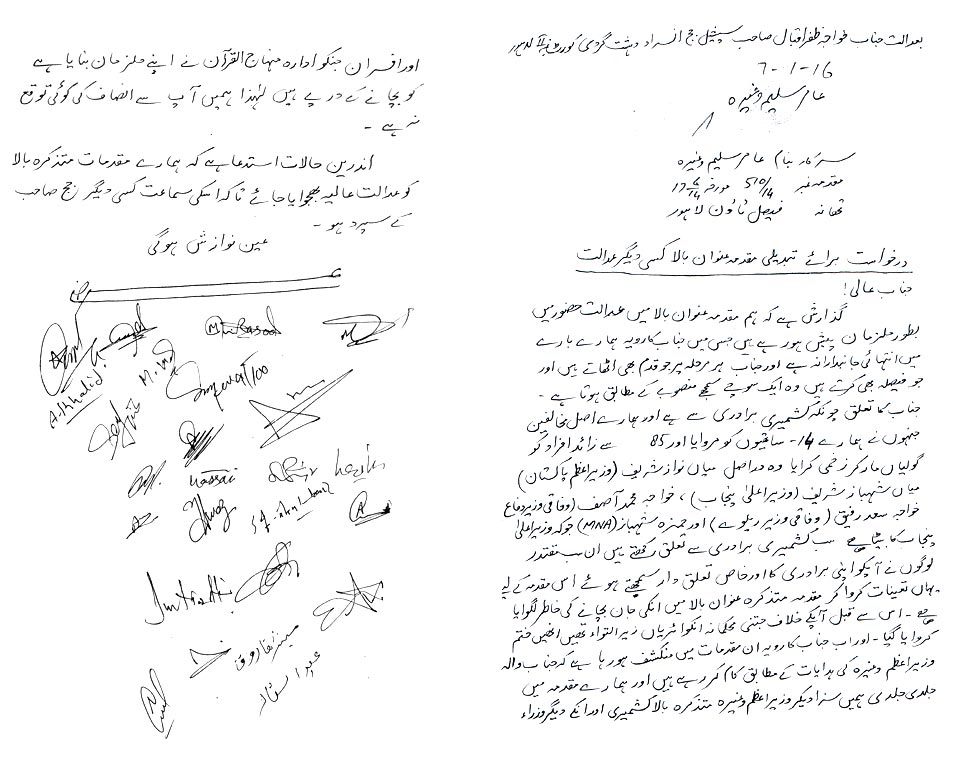 بعدالت جناب خواجہ ظفر اقبال صاحب سپیشل جج انسداد دہشت گردی کورٹ نمبر II لاہور
7-1-16
عامر سلیم وغیرہ
سرکار بنام عامر سلیم وغیرہ
مقدمہ نمبر 510/14 مورخہ 17-6/14
تھانہ فیصل ٹاؤن لاہور
درخواست برائے تبدیلی مقدمہ عنوان بالا کسی دیگر عدالت
جناب عالی!
گذارش ہے کہ ہم مقدمہ عنوان بالا میں عدالت حضور میں
بطور ملزمان پیش ہو رہے ہیں جس میں جناب کا رویہ ہمارے بارے
میں انتہائی جانبدارانہ ہے اور جناب ہر مرحلہ پر جو قدم بھی اٹھاتے ہیں اور
جو فیصلہ بھی کرتے ہیں وہ ایک سوچے سمجھے منصوبے کے مطابق ہوتا ہے ۔
جناب کا تعلق چونکہ کشمیری برادری سے ہے اور ہمارے اصل مخالفین
جنہوں نے ہمارے 14- ساتھیوں کو مروایا اور 85 سے زائد افراد کو
گولیاں مار کر زخمی کرایا وہ دراصل میاں نواز شریف (وزیراعظم پاکستان)
میاں شہباز شریف (وزیر اعلیٰ پنجاب) ، خواجہ محمد آصف (وفاقی وزیر دفاع)
خواجہ سعد رفیق (وفاقی وزیر ریلوے) اور حمزہ شہباز (MNA) جو کہ وزیر اعلیٰ
پنجاب کا بیٹا ہے سب کشمیری برادری سے تعلق رکھتے ہیں ان سب مقتدر
لوگوں نے آپکو اپنی برادری کا اور خاص تعلق دار سمجھتے ہوئے اس مقدمہ کے لیے
یہاں تعینات کروا کر مقدمہ متذکرہ عنوان بالا میں انکی جان بچانے کی خاطر لگوایا
ہے ۔ اس سے قبل آپکے خلاف جتنی محکمانہ انکوائریاں زیر التواء تھیں انھیں ختم
کروایا گیا ۔ اور اب جناب کا رویہ ان مقدمات میں منکشف ہو رہا ہے کہ جناب والہ
وزیراعظم وغیرہ کی ہدایات کے مطابق کام کر رہے ہیں اور ہمارے مقدمہ میں
جلدی جلدی ہمیں سزا دیکر وزیراعظم وغیرہ متذکرہ بالا کشمیری اور انکے دیگر وزراء
اور افسران جنکو ادارہ منہاج القرآن نے اپنے ملزمان بنایا ہے
کو بچانے کے درپے ہیں لہٰذا ہمیں آپ سے انصاف کی کوئی توقع
نہ ہے ۔
اندریں حالات استدعا ہے کہ ہمارے مقدمات متذکرہ بالا
کو عدالت عالیہ بھجوایا جائے تاکہ اسکی سماعت کسی دیگر جج صاحب
کے سپرد ہو ۔
عین نوازش ہوگی
A.Khalid
Hassan